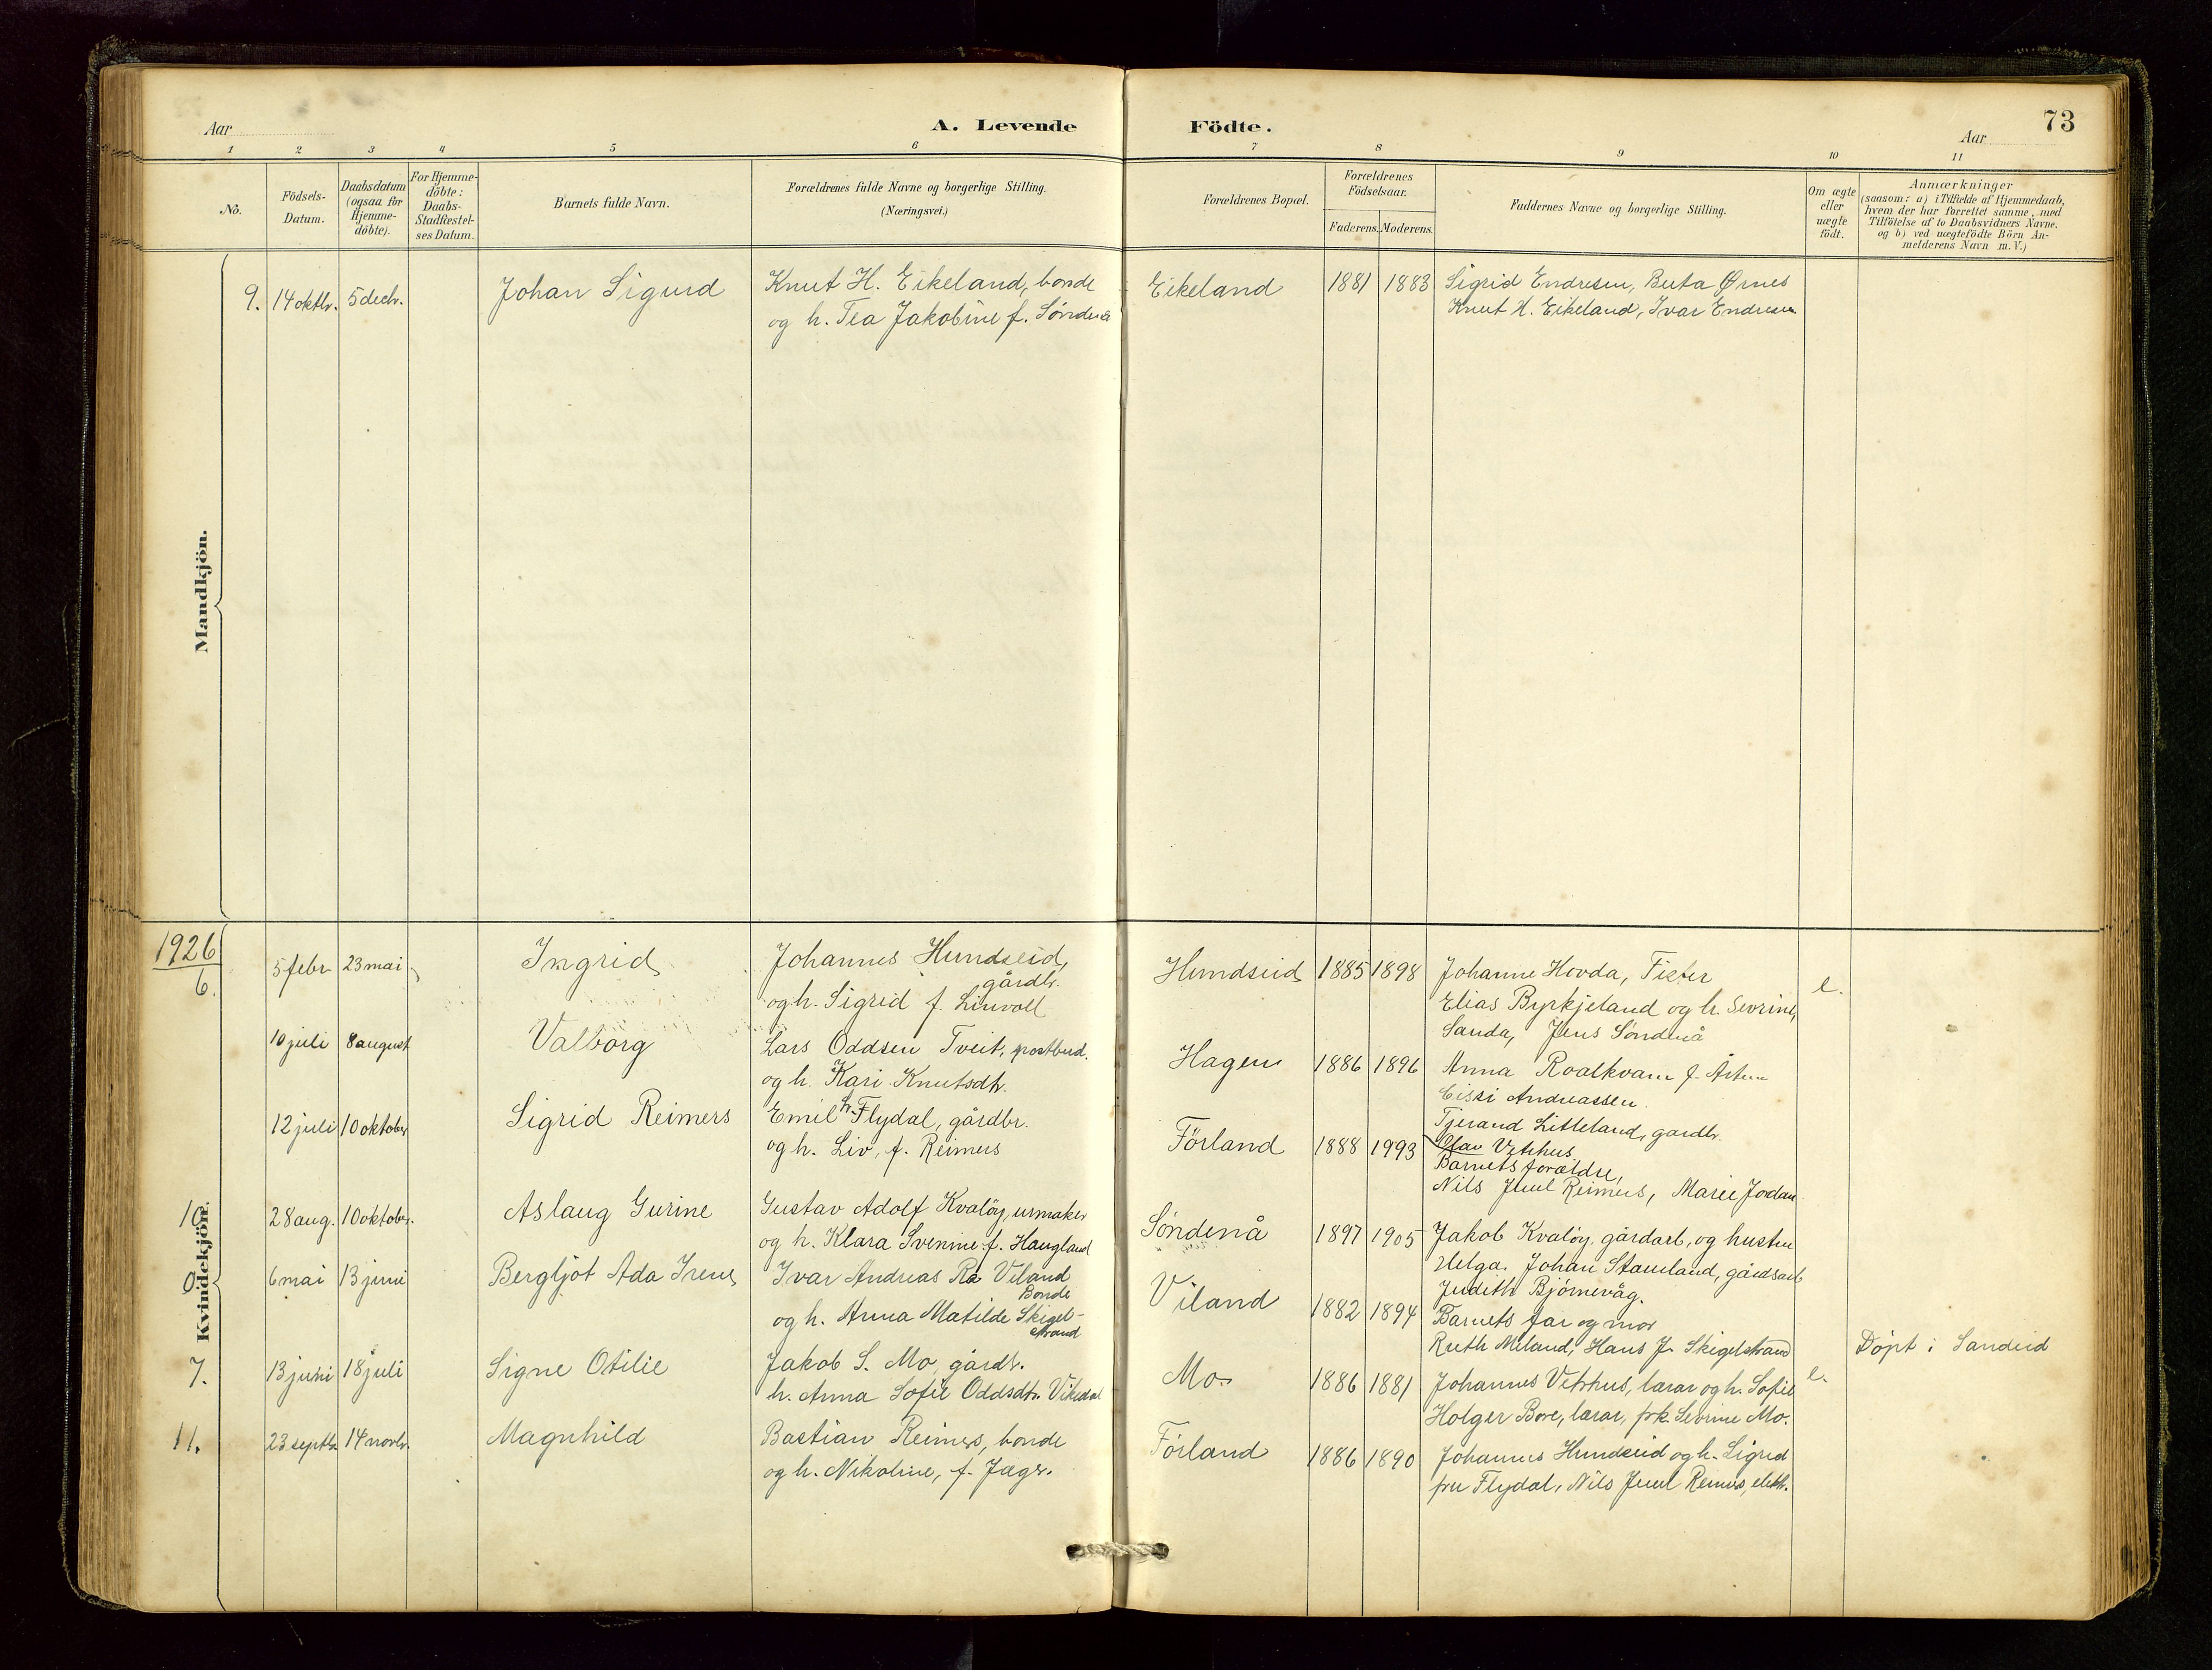 Aar
A. Levende
Födte.
Aar
73
1 2 3 4 5 6 7 8 9 10 11
No.
Födsels-
Datum.
Daabsdatum
(ogsaa for
Hjemme-
döbte).
For Hjemme-
döbte:
Daabs-
Stadfæstel-
ses Datum.
Barnets fulde Navn.
Forældrenes fulde Navne og borgerlige Stilling.
(Næringsvei.)
Forældrenes Bopæl.
Forældrenes
Födselsaar.
Faderens. Moderens.
Faddernes Navne og borgerlige Stilling.
Om ægte
eller
uægte
födt.
Anmærkninger
(saasom: a) i Tilfælde af Hjemmedaab,
hvem der har forrettet samme, med
Tilföielse af to Daabsvidners Navne.
og b) ved uægtefödte Börn An-
melderens Navn m. V.)
Mandkjön.
9. 14 oktbr. 5 decbr. Johan Sigurd Knut H. Eikeland, bonde Eikeland 1881 1883 Sigrid Endresen, Berta Ørnes
og h. Tea Jakobine f. Søndenå Knut H. Eikeland, Ivar Endresen
Kvindekjön.
1926
6. 5 febr 23 mai Ingrid Johannes Hundseid, Hundseid 1885 1898 Johanne Hovda, Fister e.
gårdbr.
og h. Sigrid f. Linvoll Elias Byrkjeland og h. Sevrine,
Sanda, Jens Søndenå
10 juli 8 august Valborg Lars Oddsen Tveit, postbud. Hagen 1886 1896 Anna Roalkvam f.
og h. Kari Knutsdtr. Andreassen.
Tjerand Litleland, gardbr.
12 juli 10 oktober Sigrid Reimers Emil H. Flydal, gårdbr. Förland 1888 1993 Olav Vetrhus
og h. Liv, f. Reimers Barnets forældre,
Nils Juul Reimers, Marie Jordan
10. 28 aug. 10 oktobr. Aslaug Gurine Gustav Adolf Kvaløy, urmaker Søndenå 1897 1905 Jakob Kvaløy, gårdarb, og hustru
og h. Klara Svenine f. Haugland Helga. Johan Stamland, gårdsarb
Judith Bjørnevåg.
0. 6 mai 13 juni Bergljot Ada Irene Ivar Andreas Ra Viland Viland 1882 1894 Barnets far og mor
Bonde
og h. Anna Matilde Skigel- Ruth Meland, Hans J. Skigelstrand Döpt i Sandeid
strand
7. 13 juni 18 juli Signe Otilie Jakob S. Mo, gårdbr. Mo. 1886 1881 Johannes Vetrhus, lærar og h. Sofie e.
h. Anna Sofie Oddsdtr. Vikedal Holger Bore, lærar, frk. Sevrine Mo.
11. 23 septbr. 14 novbr. Magnhild Bastian Reimers, bonde Förland 1886 1890 Johannes Hundseid og h. Sigrid
og h. Nikoline, f. Jæger. fru Flydal, Nils Juul Reimers, elektr.